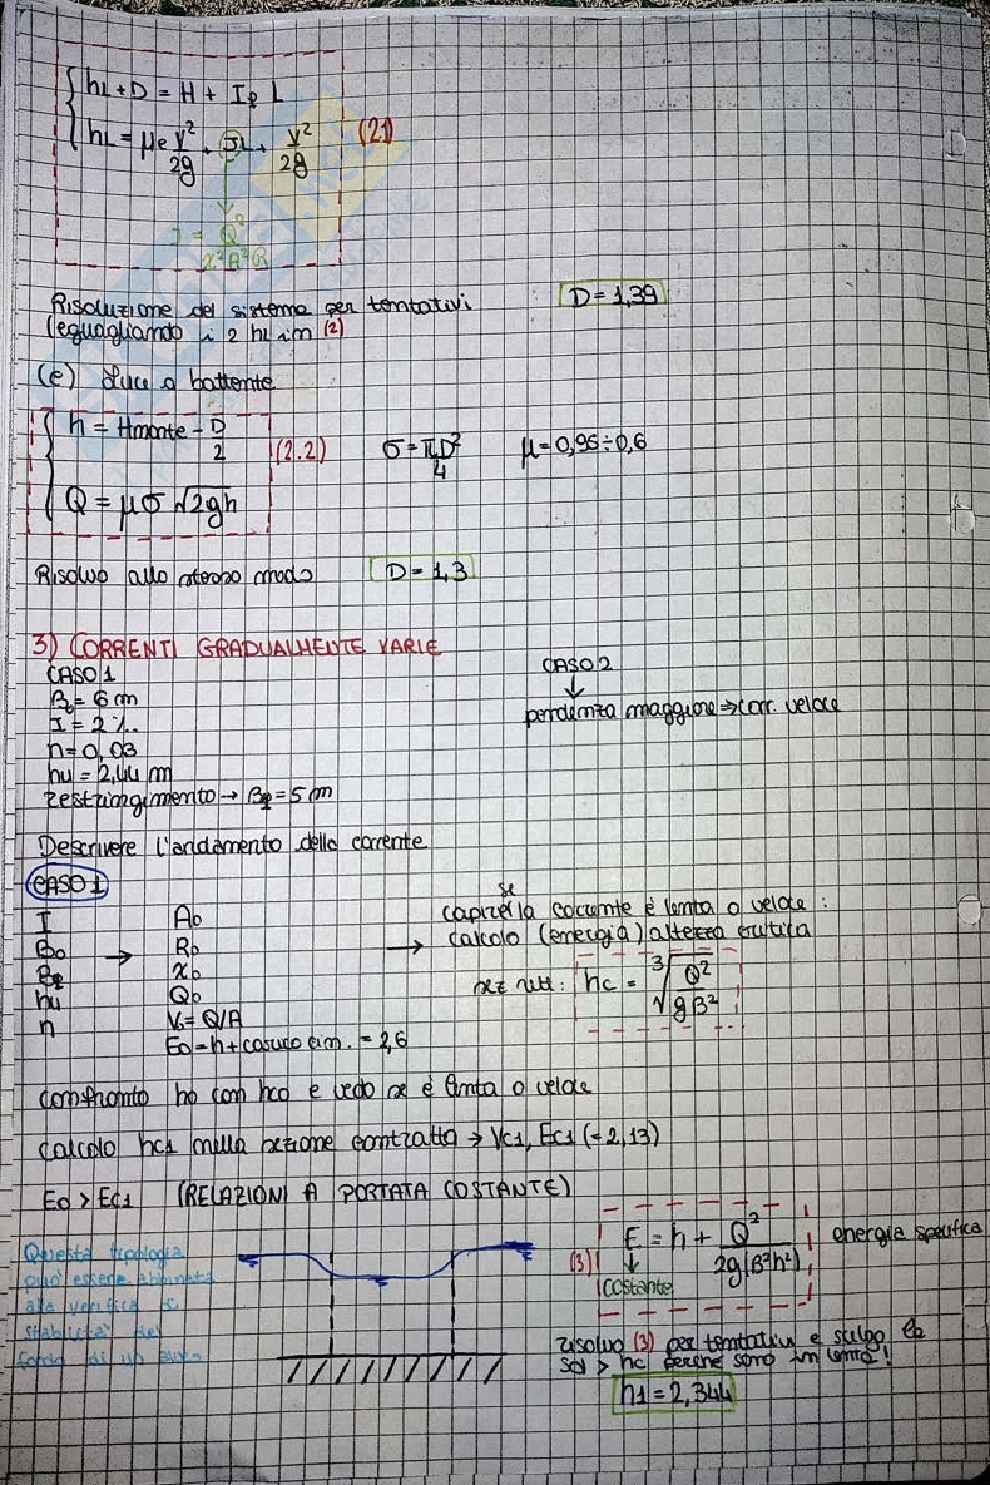 hL + D = H + If L
hL = μe V²/2g + JL + V²/2g (21)
J = Q²/χ²A²R
Risoluzione del sistema per tentativi D = 1,39
(eguagliando i 2 hL in (2)
(e) Luce a battente
h = Hmonte - D/2 (2.2) σ = πD²/4 μ = 0,95÷0,6
Q = μσ √2gh
Risolvo allo stesso modo D = 1,3
3) CORRENTI GRADUALMENTE VARIE
CASO 1
B0 = 6 m
I = 2 ‰
n = 0,03
hu = 2,44 m
restringimento → B1 = 5 m
CASO 2
↓
pendenza maggiore ⇒ corr. veloce
Descrivere l'andamento della corrente
CASO 1
I A0
B0 → R0
B1 χ0
hu Q0
n V0 = Q/A
E0 = h + carico cin. = 2,6
→ se
capire la corrente è lenta o veloce:
calcolo (energia) altezza critica
sez rett: hc = ³√Q²/gB²
confronto h0 con hc0 e vedo se è lenta o veloce
calcolo hc1 nella sezione contratta → Vc1, Ec1 (= 2,13)
E0 > Ec1 (RELAZIONI A PORTATA COSTANTE)
Questa tipologia
può essere abbinata
alla verifica
stabilità del
fondo di un
(3) E = h + Q²/2g(B²h²) energia specifica
↓
costante
risolvo (3) per tentativi e scelgo la
sol > hc perché sono in lenta!
h1 = 2,344